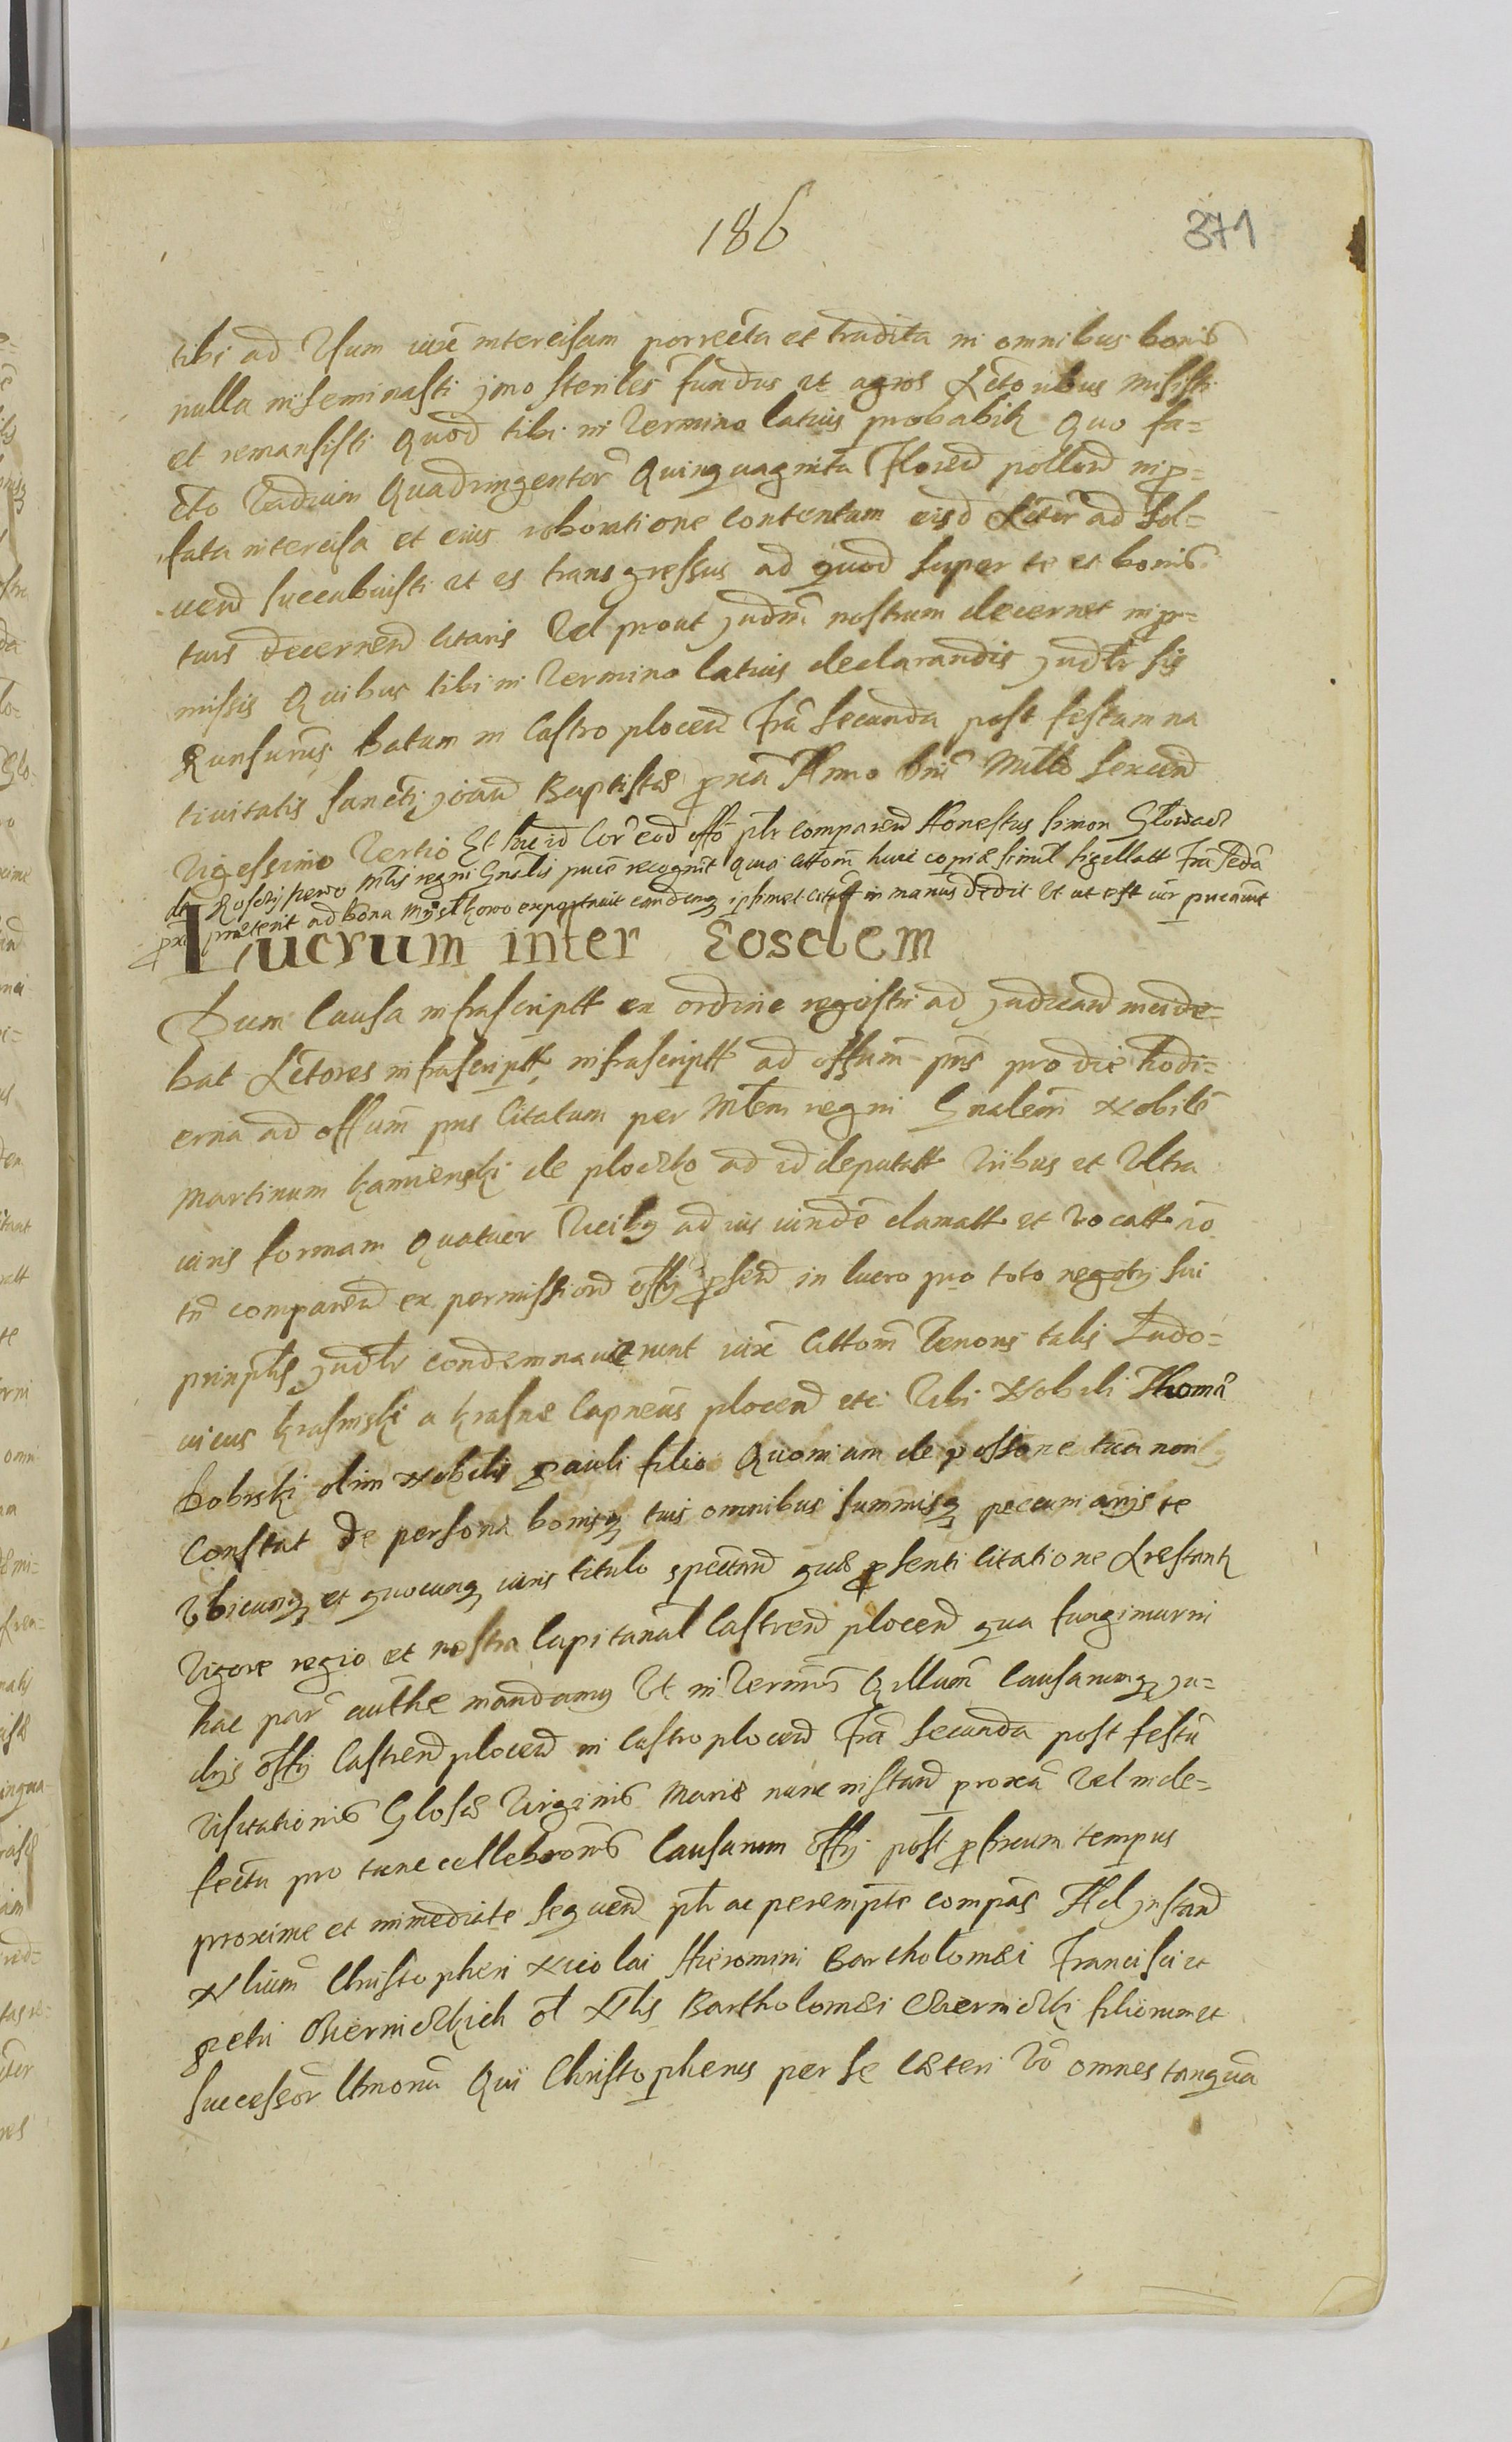 186
371
tibi ad Usum iuxẽ intercisam porrecta et tradita in omnibus bonis
nulla inseminasti imo steriles fundos et agros Actoribus misisti
et remansisti Quod tibi in Termino latius probabitz Quo fa=
cto Vadium Quadringentor Quinquaginta Floren̄ pollon̄ in p=
fata intercisa et eius roboratione contentam eisd̄ Actor ad sol=
uen̄ succubuisti et es transgressus ad quod super te et bonis
tuis decernen̄ citaris Vel prout Judm̄ nostrum decernet in p=
missis Quibus tibi in Termino latius declarandis Judtr sis
Runsurus Datum in Castro plocen̄ Fr̃a Secunda post festum na
tiuitatis Sancti Joan̄ Baptistæ p̱xa Anno Dni Mill̃o Sexcen̄
Vigessimo Tertio Et hic id Cor̃ eod̄ offo ptr comparen̄ Honestus Simon
de Mtis regni Gnalis puce recognit Quia cittom huic copiæ simil sigellatt Fr̃a Scdã
pxe præterit ad bona exportauit eandemq ipsimet citato in manus dedit Et ut est iur pucauit
Lucrum inter Eosdem
Dum Causa infrascriptt ex ordine regestri ad judican̄ incide=
bat Actores infrascriptt, infrascriptt ad offum pns pro die hodi=
erna ad offium pns Citatum per Mtem regni Gnalem Nobilẽ
Martinum Kamienski de Plocko ad id deputatt Tribus et Ultra
iuris formam Quatuor Vicibq ad ius iinde clamatt et Vocatt nõ
tn̄ comparen̄ ex permission̄ offij pñsen̄ in lucro pro toto negotij sui
prinptis Judtr condemnauerunt iuxe Cittom Tenoris talis Ludo=
uicus Krasinski a Krasne Capneus plocen̄ etc Tibi Nobili Thomæ
Dobrski olim Nobilis Pauli filio Quoniam de possone tua non
Constat De persona bonisq tuis omnibus summisq pecuniarijs te
Vbicunq et quocunq iuris titulo spectan̄ quæ p̱senti citatione Arestantz
Vigore regio et nostra Capitanal Castren̄ plocen̄ qua fungimur in
hac par̃ authe mandamq Vt in Terminis Qrllum Causarumq Ju=
dijs offij Castren̄ plocen̄ in Castro plocen̄ Fr̃a Secunda post festũ
Visitationis Glosæ Virginis Mariæ nunc instan̄ proxeã Vel in de=
fectu pro tunc cellebronis Causarum offij post p̱sheum tempus
proxime et immediate sequen̄ ptr ac perempte compãs Ad Instan̄
Nlium Christopheri Nicolai Hieronimi Bartholomæi Francisci et
Petri Czernickich ol Nlis Bartholomæi Czernicki filiorum et
Successor̃ ltmorũ Qui Christopherus per se cæteri Vo omnes tanquã